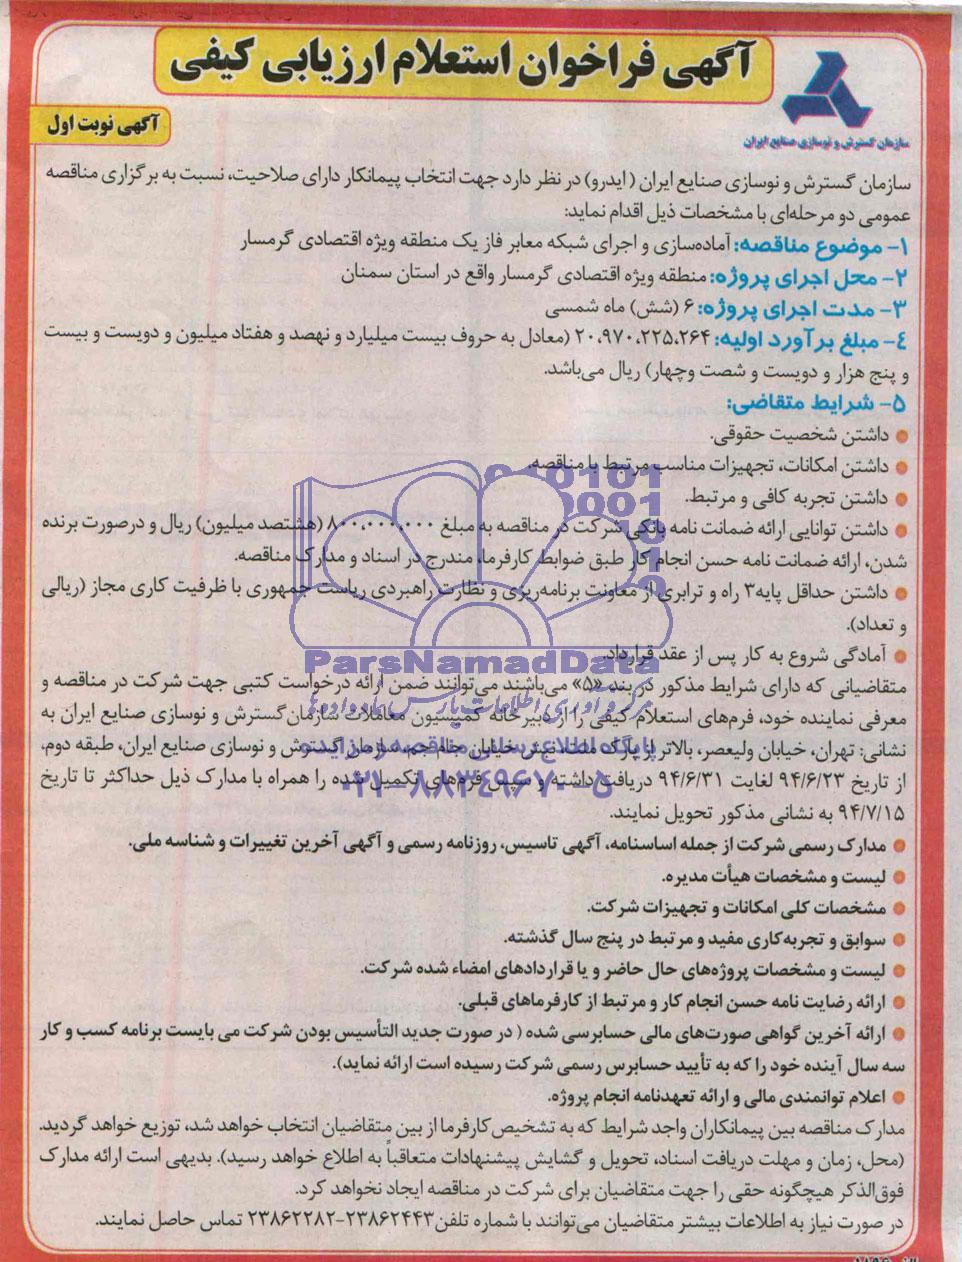 آگهی فراخوان استعلام ارزیابی کیفی
سازمان گسترش و نوسازی صنایع ایران
آگهی نوبت اول
سازمان گسترش و نوسازی صنایع ایران (ایدرو) در نظر دارد جهت انتخاب پیمانکار دارای صلاحیت، نسبت به برگزاری مناقصه
عمومی دو مرحله‌ای با مشخصات ذیل اقدام نماید:
۱- موضوع مناقصه: آماده‌سازی و اجرای شبکه معابر فاز یک منطقه ویژه اقتصادی گرمسار
۲- محل اجرای پروژه: منطقه ویژه اقتصادی گرمسار واقع در استان سمنان
۳- مدت اجرای پروژه: ۶ (شش) ماه شمسی
۴- مبلغ برآورد اولیه: ۲۰،۹۷۰،۲۲۵،۲۶۴ (معادل به حروف بیست میلیارد و نهصد و هفتاد میلیون و دویست و بیست
و پنج هزار و دویست و شصت وچهار) ریال می‌باشد.
۵- شرایط متقاضی:
● داشتن شخصیت حقوقی.
● داشتن امکانات، تجهیزات مناسب مرتبط با مناقصه.
● داشتن تجربه کافی و مرتبط.
● داشتن توانایی ارائه ضمانت نامه بانکی شرکت در مناقصه به مبلغ ۸۰۰،۰۰۰،۰۰۰ (هشتصد میلیون) ریال و درصورت برنده
شدن، ارائه ضمانت نامه حسن انجام کار طبق ضوابط کارفرما، مندرج در اسناد و مدارک مناقصه.
● داشتن حداقل پایه۳ راه و ترابری از معاونت برنامه‌ریزی و نظارت راهبردی ریاست جمهوری با ظرفیت کاری مجاز (ریالی
و تعداد).
● آمادگی شروع به کار پس از عقد قرارداد.
ParsNamadData
متقاضیانی که دارای شرایط مذکور در بند «۵» می‌باشند می‌توانند ضمن ارائه درخواست کتبی جهت شرکت در مناقصه و
معرفی نماینده خود، فرم‌های استعلام کیفی را از دبیرخانه کمیسیون معاملات سازمان گسترش و نوسازی صنایع ایران به
نشانی: تهران، خیابان ولیعصر، بالاتر از پارک ملت، نبش خیابان جام جم، سازمان گسترش و نوسازی صنایع ایران، طبقه دوم،
از تاریخ ۹۴/۶/۲۳ لغایت ۹۴/۶/۳۱ دریافت داشته و سپس فرم‌های تکمیل شده را همراه با مدارک ذیل حداکثر تا تاریخ
۰۲۱-۸۸۳۴۹۶۷۰-۵
۹۴/۷/۱۵ به نشانی مذکور تحویل نمایند.
● مدارک رسمی شرکت از جمله اساسنامه، آگهی تاسیس، روزنامه رسمی و آگهی آخرین تغییرات و شناسه ملی.
● لیست و مشخصات هیأت مدیره.
● مشخصات کلی امکانات و تجهیزات شرکت.
● سوابق و تجربه‌کاری مفید و مرتبط در پنج سال گذشته.
● لیست و مشخصات پروژه‌های حال حاضر و یا قراردادهای امضاء شده شرکت.
● ارائه رضایت نامه حسن انجام کار و مرتبط از کارفرماهای قبلی.
● ارائه آخرین گواهی صورت‌های مالی حسابرسی شده ( در صورت جدید التأسیس بودن شرکت می بایست برنامه کسب و کار
سه سال آینده خود را که به تأیید حسابرس رسمی شرکت رسیده است ارائه نماید).
● اعلام توانمندی مالی و ارائه تعهدنامه انجام پروژه.
مدارک مناقصه بین پیمانکاران واجد شرایط که به تشخیص کارفرما از بین متقاضیان انتخاب خواهد شد، توزیع خواهد گردید.
(محل، زمان و مهلت دریافت اسناد، تحویل و گشایش پیشنهادات متعاقباً به اطلاع خواهد رسید). بدیهی است ارائه مدارک
فوق‌الذکر هیچگونه حقی را جهت متقاضیان برای شرکت در مناقصه ایجاد نخواهد کرد.
در صورت نیاز به اطلاعات بیشتر متقاضیان می‌توانند با شماره تلفن ۲۳۸۶۲۴۴۳-۲۳۸۶۲۲۸۲ تماس حاصل نمایند.